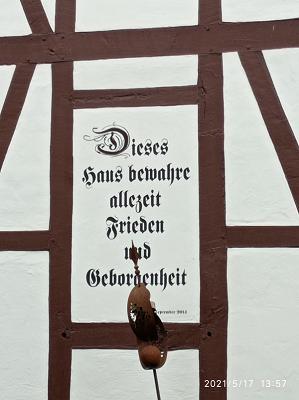 Dieses
Haus bewahre
allezeit
Frieden
und
Geborgenheit
September 2015
2021/5/17 13:57